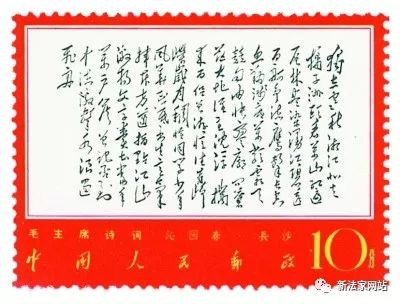 独立寒秋湘江北去
橘子洲头看万山红遍
层林尽染漫江碧透
百舸争流鹰击长空
鱼翔浅底万类霜天
竞自由怅寥廓问
苍茫大地谁主沉浮携
来百侣曾游忆往昔峥
嵘岁月稠恰同学少年
风华正茂书生意气
挥斥方遒指点江山
激扬文字粪土当年
万户侯曾记否到
中流击水浪遏
飞舟
毛主席诗词 沁园春 长沙
中国人民邮政 10分
新法家网站